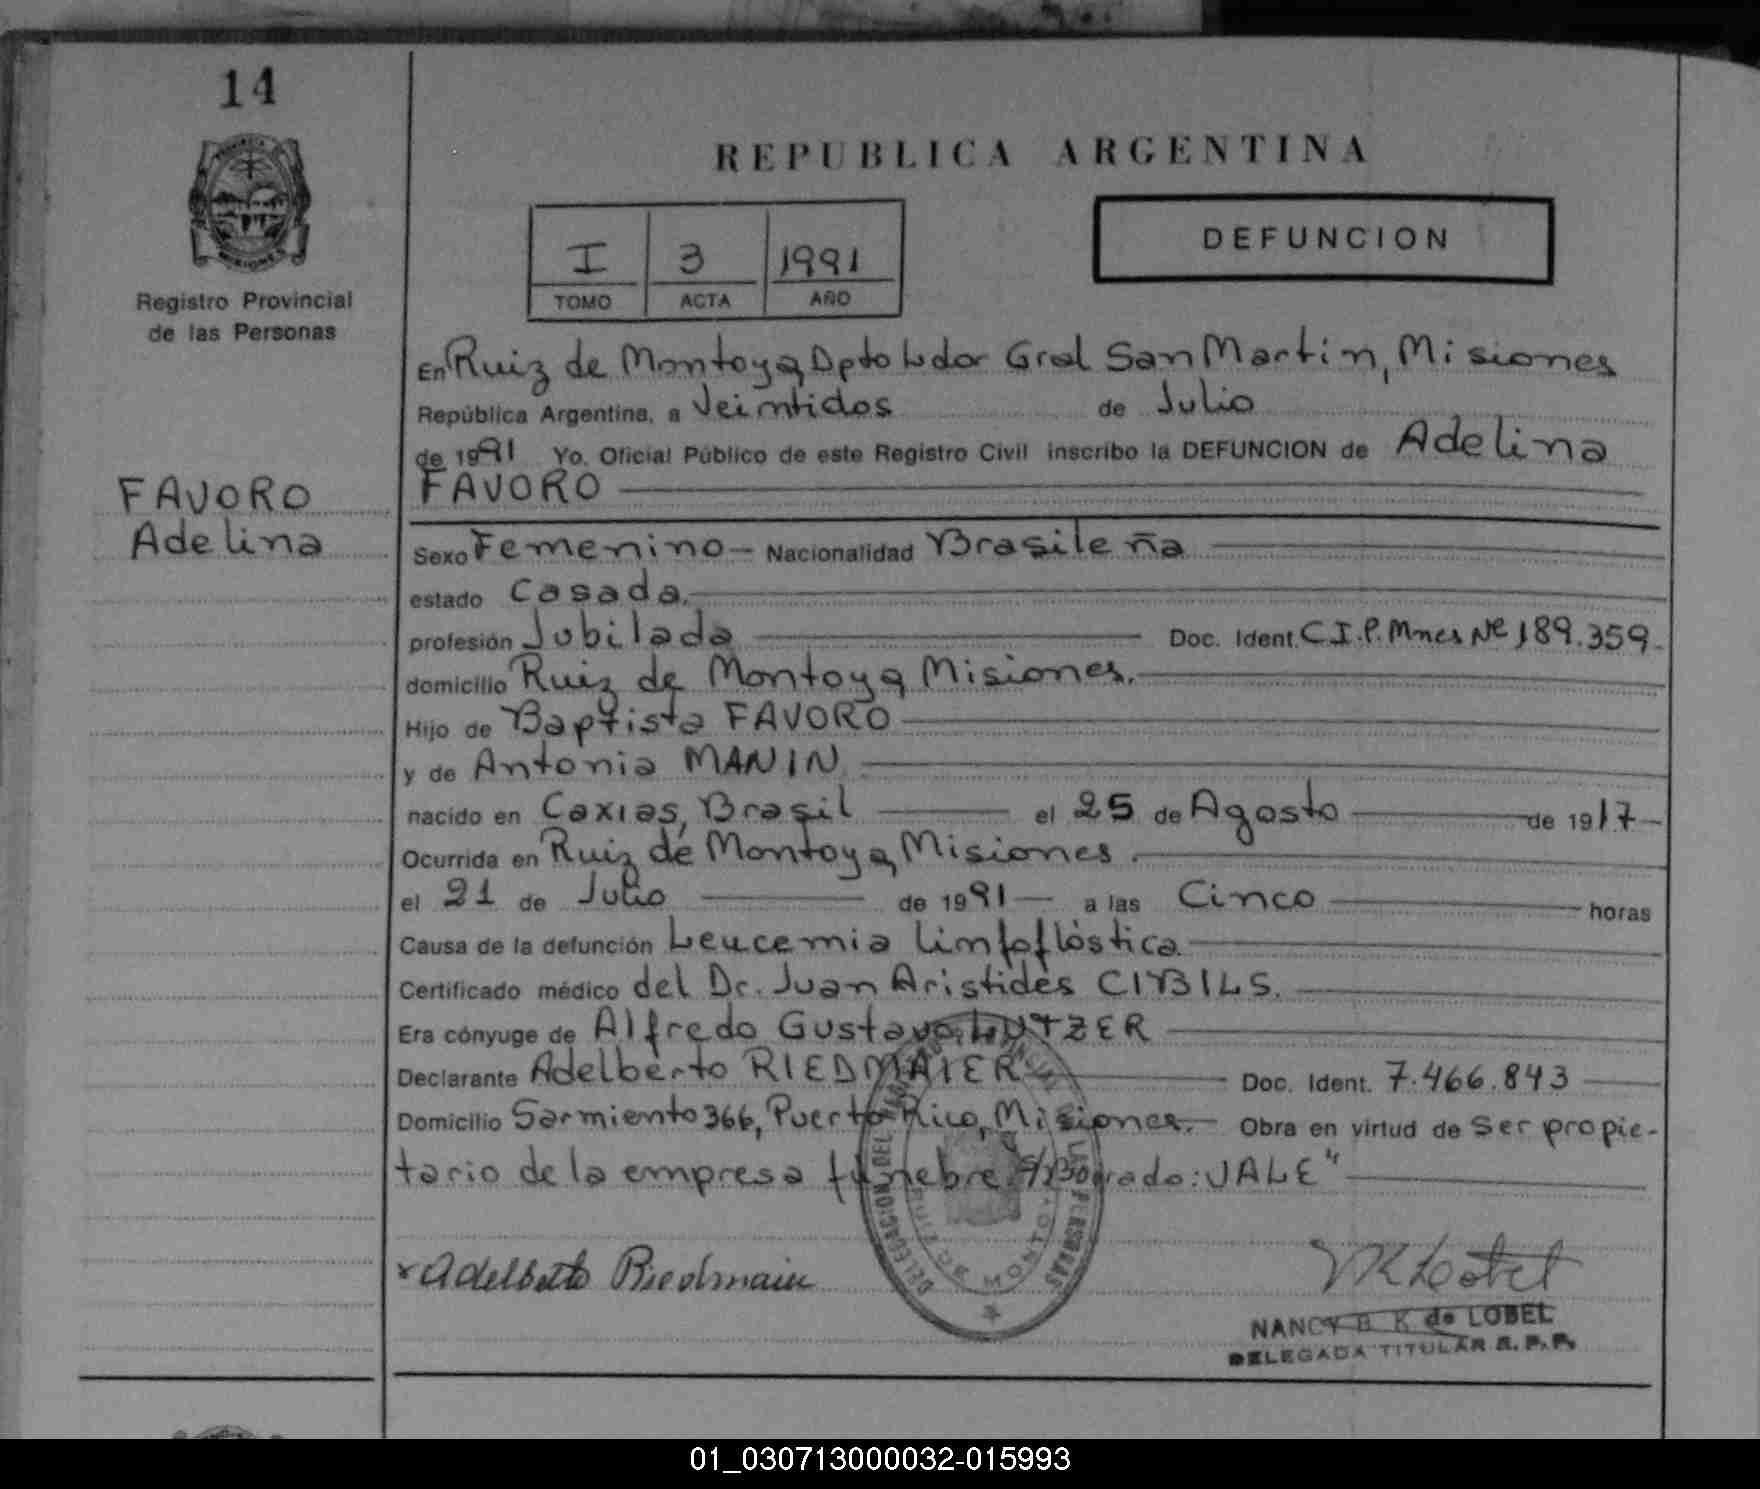 14
REPUBLICA ARGENTINA
I 3 1991
TOMO ACTA AÑO
DEFUNCION
MISIONES
Registro Provincial
de las Personas
En Ruiz de Montoya, Dpto Ldor Gral San Martin, Misiones
República Argentina, a Veintidos de Julio
de 1991 Yo. Oficial Público de este Registro Civil inscribo la DEFUNCION de Adelina
FAVORO
FAVORO
Adelina
Sexo Femenino — Nacionalidad Brasileña
estado Casada.
profesión Jubilada Doc. Ident. C.I.P. Mnes Nº 189.359.
domicilio Ruiz de Montoya, Misiones.
Hijo de Baptista FAVORO
y de Antonia MANIN
nacido en Caxias, Brasil el 25 de Agosto de 1917
Ocurrida en Ruiz de Montoya, Misiones.
el 21 de Julio de 1991 a las Cinco horas
Causa de la defunción Leucemia linfoflástica
Certificado médico del Dr. Juan Aristides CIBILS.
Era cónyuge de Alfredo Gustavo LUTZER
Declarante Adelberto RIEDMAIER Doc. Ident. 7.466.843
Domicilio Sarmiento 366, Puerto Rico, Misiones. Obra en virtud de ser propie-
tario de la empresa fúnebre S/Borrado: VALE"
DELEGACION DEL LAS PERSONAS
RUIZ DE MONTOYA
x Adelberto Riedmaier
NANCY B K de LOBEL
DELEGADA TITULAR R. P. P.
01_030713000032-015993